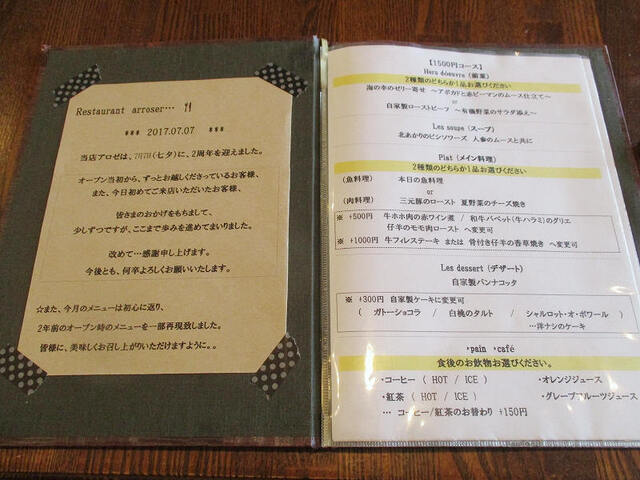 Restaurant arroser…
*** 2017.07.07 ***
当店アロゼは、7月7日(七夕)に、2周年を迎えました。
オープン当初から、ずっとお越しくださっているお客様、
また、今日初めてご来店いただいたお客様、
皆さまのおかげをもちまして、
少しずつですが、ここまで歩みを進めてまいりました。
改めて…感謝申し上げます。
今後とも、何卒よろしくお願いいたします。
☆また、今月のメニューは初心に返り、
2年前のオープン時のメニューを一部再現致しました。
皆様に、美味しくお召し上がりいただけますように。。
【1500円コース】
Hors doeuvre (前菜)
2種類のどちらか1品お選びください
海の幸のゼリー寄せ ~アボカドと赤ピーマンのムース仕立て~
or
自家製ローストビーフ ~有機野菜のサラダ添え~
Les soupe (スープ)
北あかりのビシソワーズ 人参のムースと共に
Plat (メイン料理)
2種類のどちらか1品お選びください
(魚料理) 本日の魚料理
or
(肉料理) 三元豚のロースト 夏野菜のチーズ焼き
※ +500円 牛ホホ肉の赤ワイン煮 / 和牛バベット(牛ハラミ)のグリエ
仔羊のモモ肉ロースト へ変更可
※ +1000円 牛フィレステーキ または 骨付き仔羊の香草焼き へ変更可
Les dessert (デザート)
自家製パンナコッタ
※ +300円 自家製ケーキに変更可
( ガトーショコラ / 白桃のタルト / シャルロット・オ・ポワール )
…洋ナシのケーキ
・pain ・café
食後のお飲物お選びください。
・コーヒー ( HOT / ICE ) ・オレンジジュース
・紅茶 ( HOT / ICE ) ・グレープフルーツジュース
… コーヒー/紅茶のお替わり +150円